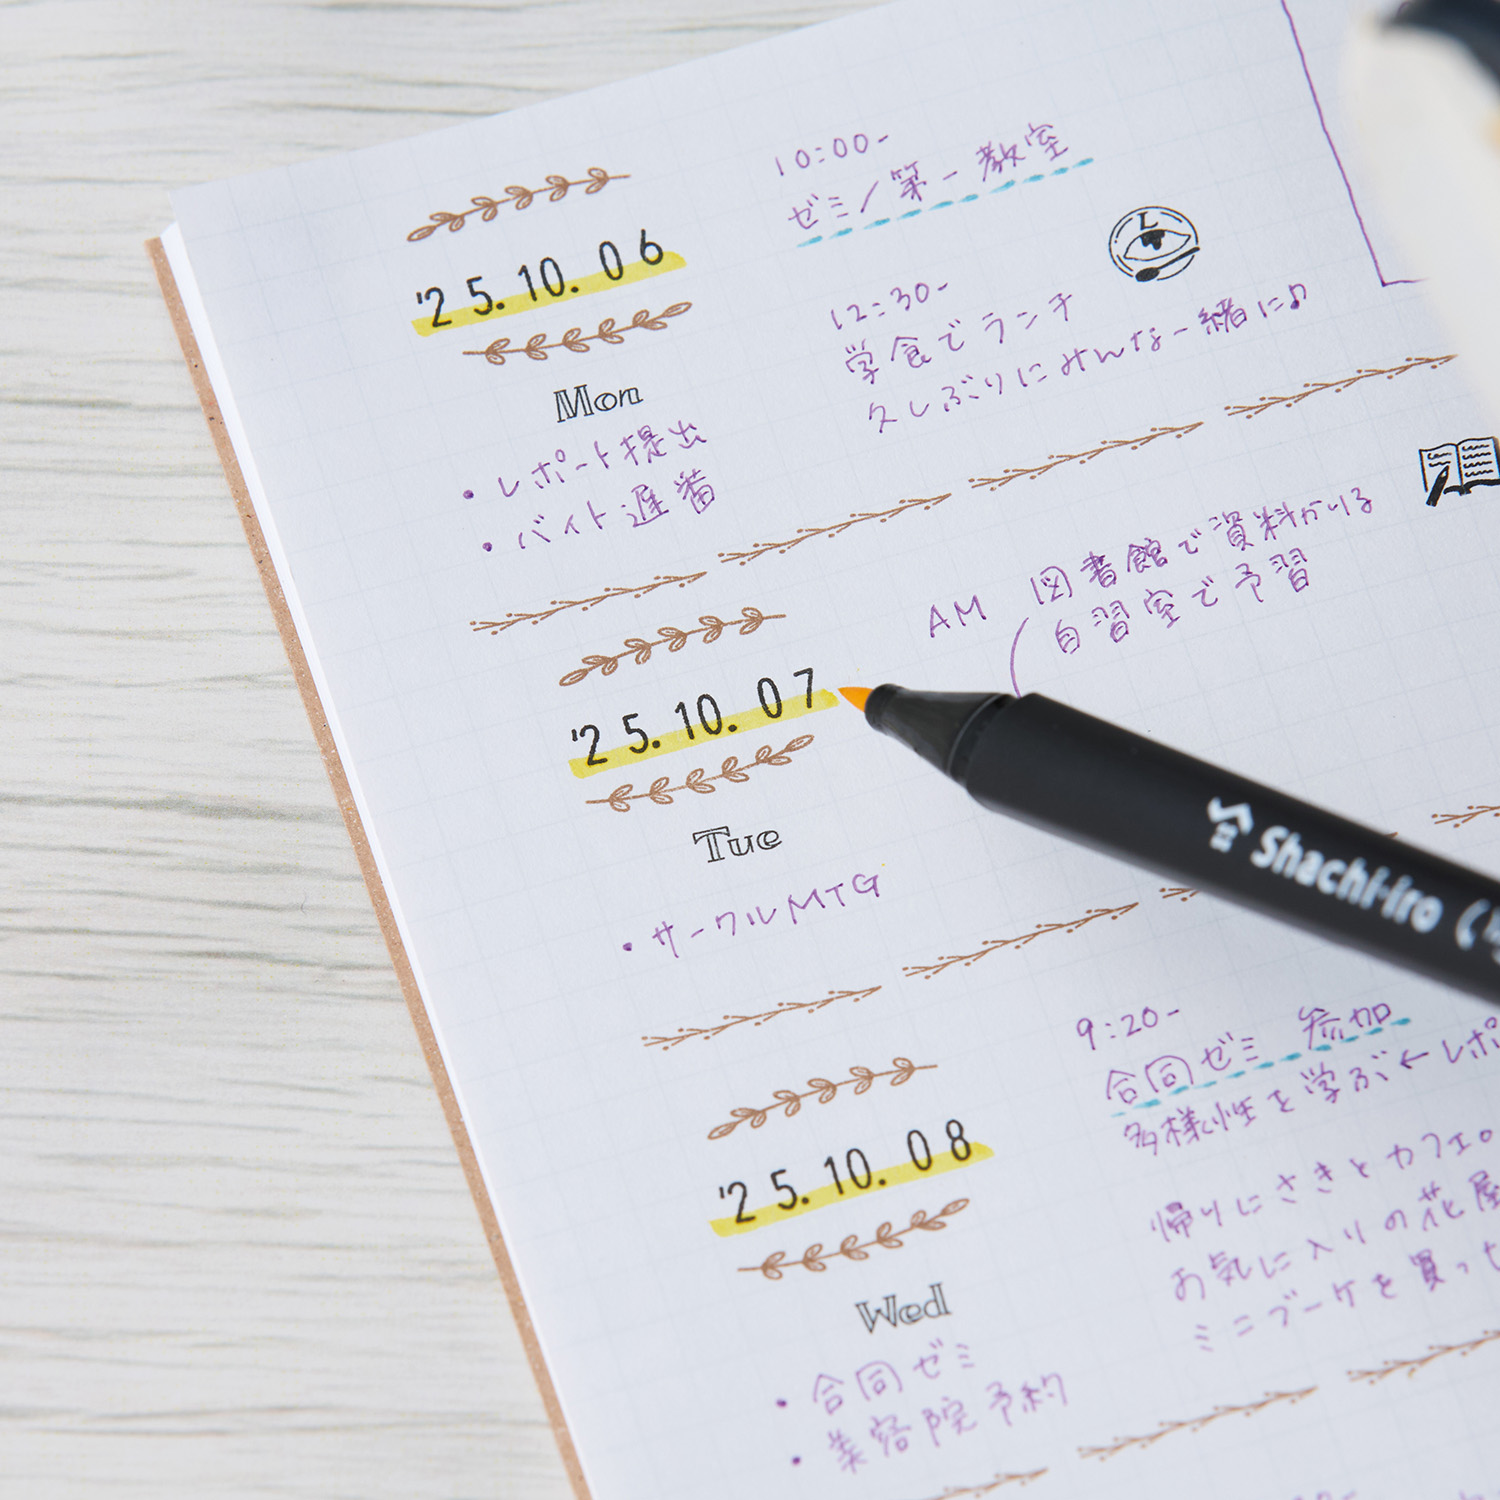 '25.10.06
Mon
・レポート提出
・バイト遅番
10:00-
ゼミ/第一教室
L
12:30-
学食でランチ
久しぶりにみんな一緒に♪
'25.10.07
Tue
・サークルMTG
AM 図書館で資料かりる
自習室で予習
Shachi-iro
'25.10.08
Wed
・合同ゼミ
・美容院予約
9:20-
合同ゼミ 参加
多様性を学ぶ←レポ
帰りにさきとカフェ。
お気に入りの花屋
ミニブーケを買っ